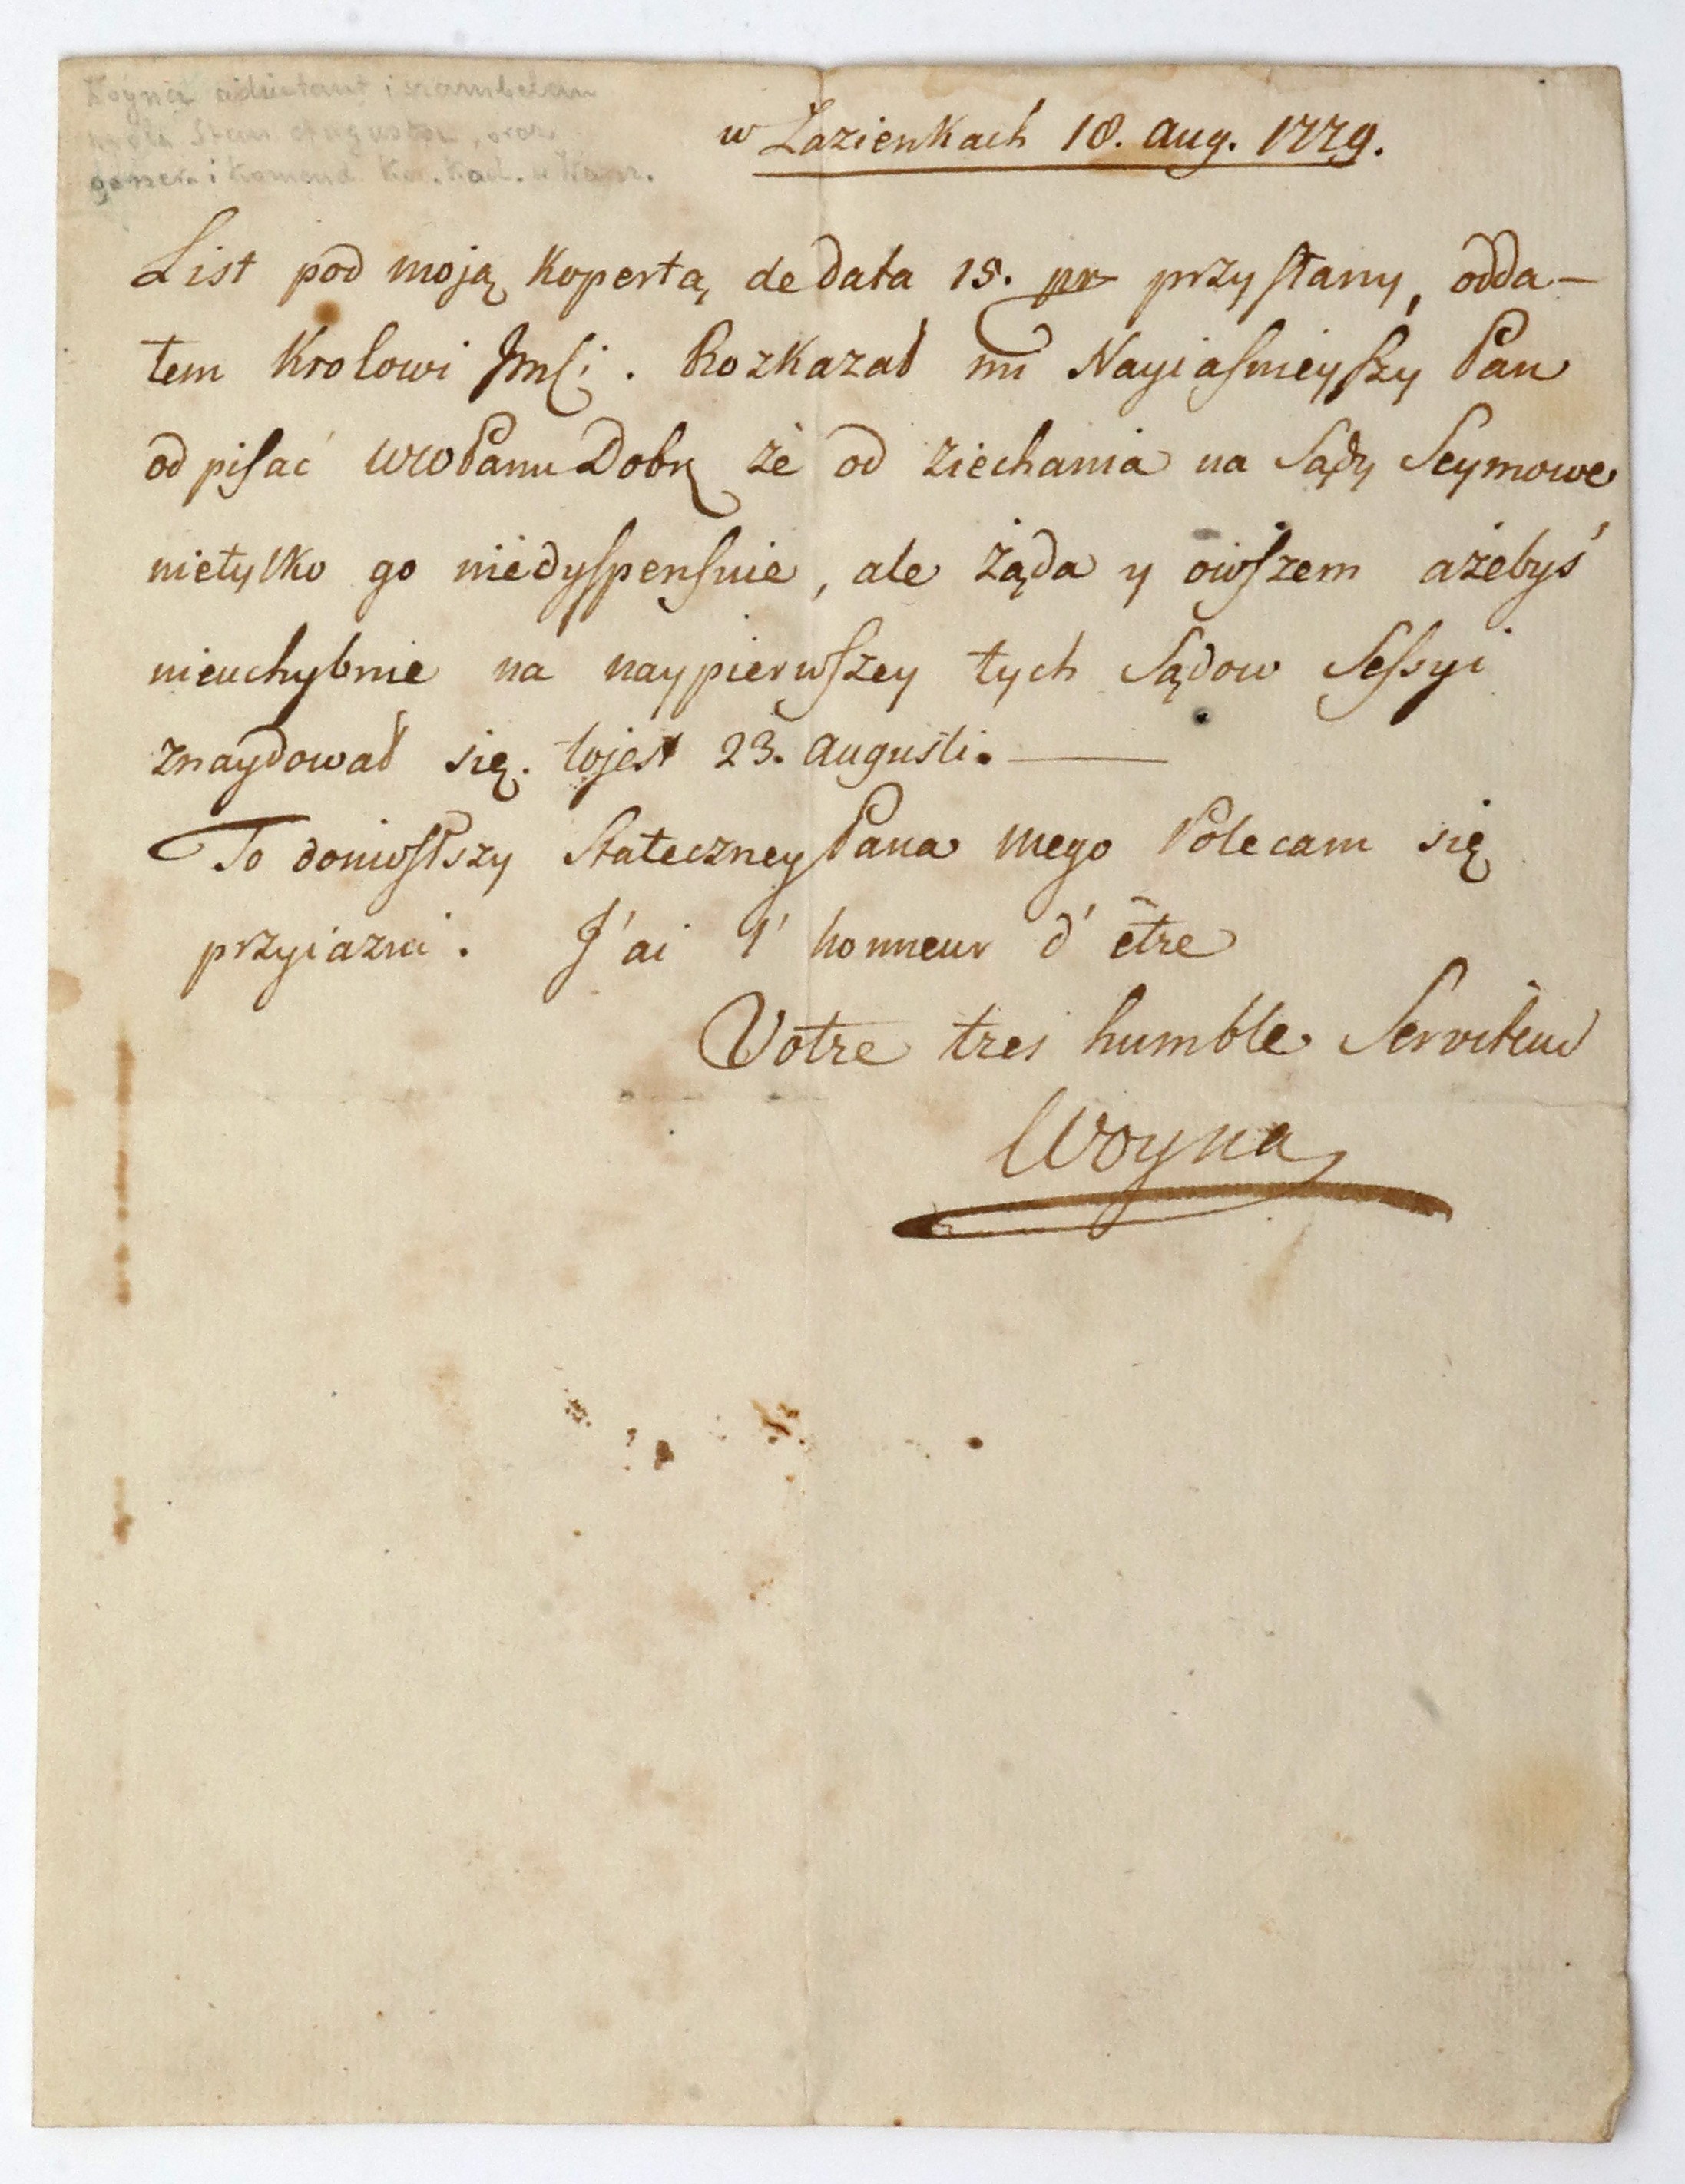 Woyna adiutant i szambelan
króla Stan. Augusta, oraz
gener. i komend. Kor. Kad. w Warsz.
w Lazienkach 18. aug. 1779.
List pod moją Kopertą de data 15. pr przysłany, odda-
łem Krolowi Jmſci. Rozkazał mi Nayiaſnieyſzy Pan
odpiſać WWPanu Dobr że od ziechania na Sądy Seymowe
nietylko go niedyſpenſuie, ale żąda y owſzem ażebyś
nieuchybnie na naypierwſzey tych Sądow Seſsyi
znaydował się. tojest 23. Augusti.
To doniosłszy Stateczney Pana mego Polecam się
przyiazni. J'ai l'honneur d'être
Votre tres humble Serviteur
Woyna